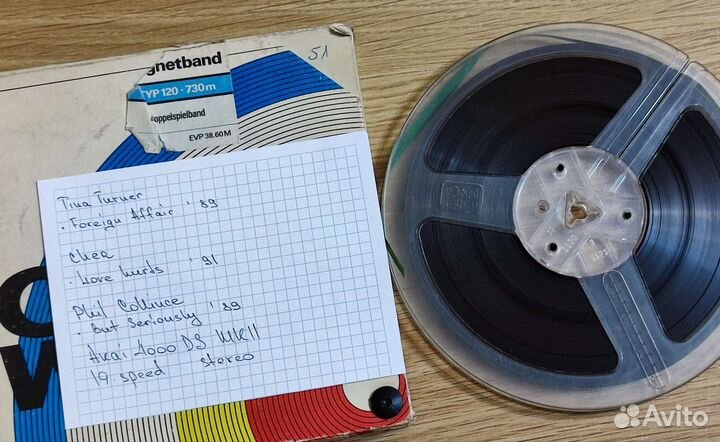 gnetband
TYP 120 · 730 m
oppelspielband
EVP 38.60 M
51
Tina Turner
. Foreign Affair '89
Cher
. Love hurts '91
Phil Collince
. But Seriously '89
Akai 4000 DS MKII
19. speed stereo
ORWO
Avito